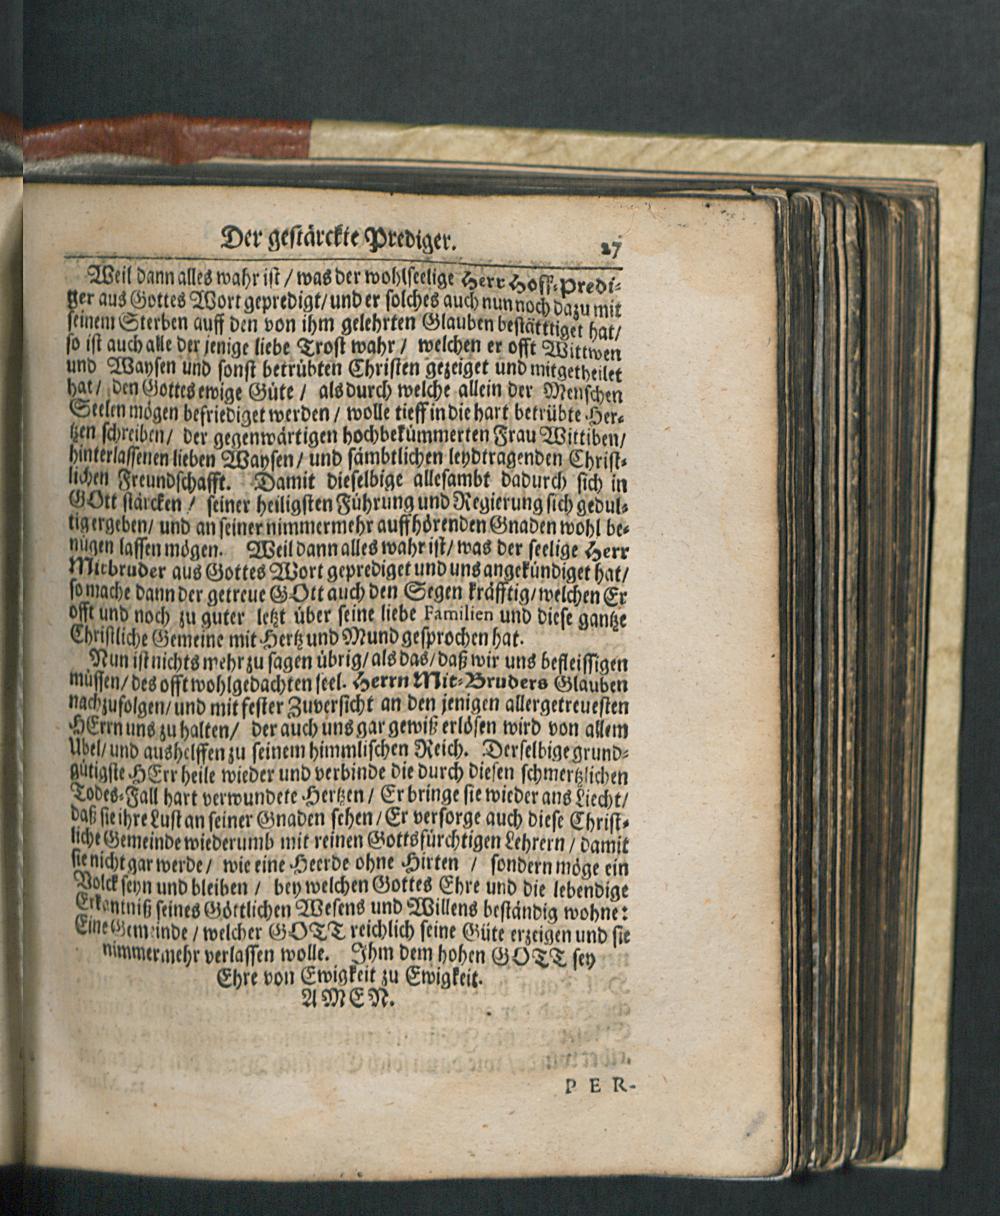 Der gestärckte Prediger. 27
Weil dann alles wahr ist / was der wohlseelige Herr Hoff-Predi-
ger aus Gottes Wort gepredigt / und er solches auch nun noch dazu mit
seinem Sterben auff den von ihm gelehrten Glauben bestätttiget hat /
so ist auch alle der jenige liebe Trost wahr / welchen er offt Wittwen
und Waysen und sonst betrübten Christen gezeiget und mitgetheilet
hat / den Gottes ewige Güte / als durch welche allein der Menschen
Seelen mögen befriediget werden / wolle tieff in die hart betrübte Her-
tzen schreiben / der gegenwärtigen hochbekümmerten Frau Wittiben /
hinterlassenen lieben Waysen / und sämbtlichen leydtragenden Christ-
lichen Freundschafft. Damit dieselbige allesambt dadurch sich in
GOtt stärcken / seiner heiligsten Führung und Regierung sich gedul-
tig ergeben / und an seiner nimmermehr auffhörenden Gnaden wohl be-
nügen lassen mögen. Weil dann alles wahr ist / was der seelige Herr
Mitbruder aus Gottes Wort geprediget und uns angekündiget hat /
so mache dann der getreue GOtt auch den Segen kräfftig / welchen Er
offt und noch zu guter letzt über seine liebe Familien und diese gantze
Christliche Gemeine mit Hertz und Mund gesprochen hat.
Nun ist nichts mehr zu sagen übrig / als das / daß wir uns befleissigen
müssen / des offt wohlgedachten seel. Herrn Mit-Bruders Glauben
nachzufolgen / und mit fester Zuversicht an den jenigen allergetreuesten
HErrn uns zu halten / der auch uns gar gewiß erlösen wird von allem
Übel / und aushelffen zu seinem himmlischen Reich. Derselbige grund-
gütigste HErr heile wieder und verbinde die durch diesen schmertzlichen
Todes-Fall hart verwundete Hertzen / Er bringe sie wieder ans Liecht /
daß sie ihre Lust an seiner Gnaden sehen / Er versorge auch diese Christ-
liche Gemeinde wiederumb mit reinen Gottsfürchtigen Lehrern / damit
sie nicht gar werde / wie eine Heerde ohne Hirten / sondern möge ein
Volck seyn und bleiben / bey welchen Gottes Ehre und die lebendige
Erkantniß seines Göttlichen Wesens und Willens beständig wohne:
Eine Gemeinde / welcher GOTT reichlich seine Güte erzeigen und sie
nimmermehr verlassen wolle. Ihm dem hohen GOTT sey
Ehre von Ewigkeit zu Ewigkeit.
AMEN.
PER-